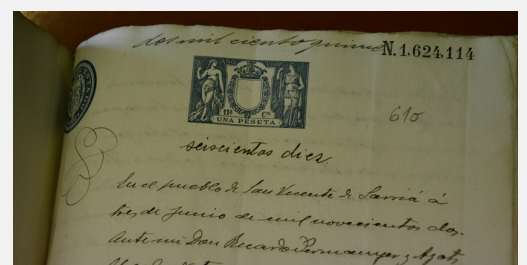 dos mil ciento quince N.1.624.114
11ª Cª
UNA PESETA
610
seiscientos diez.
En el pueblo de San Vicente de Sarriá á
tres de Junio de mil novecientos dos.
Ante mi Don Ricardo Permanyer y Ayats